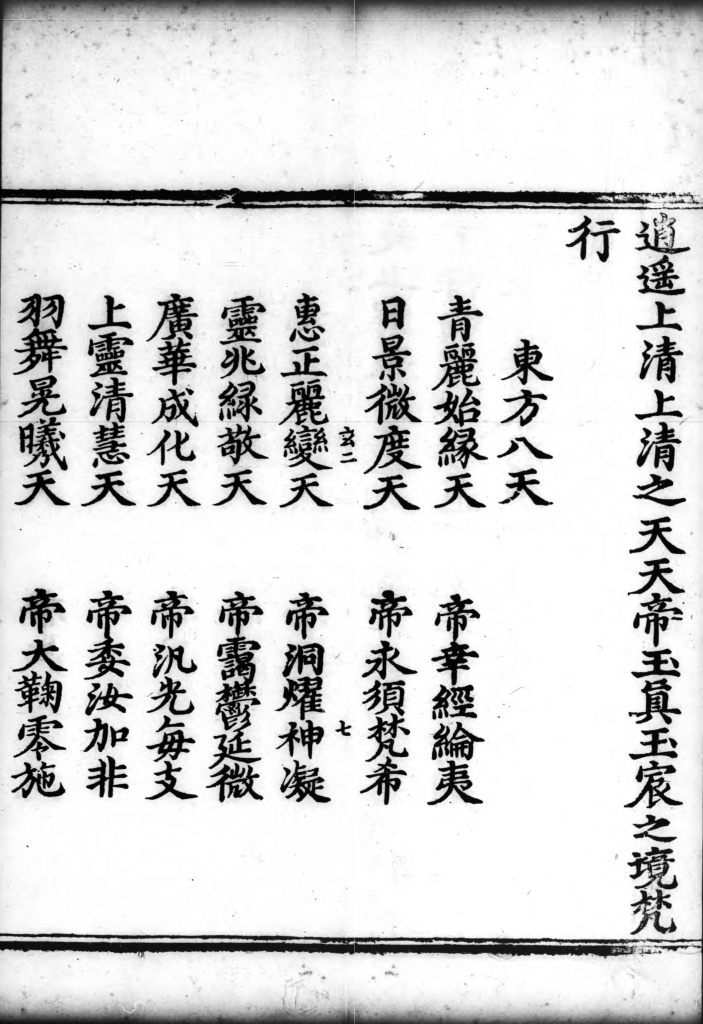 逍遥上清上清之天天帝玉眞玉宸之境梵
行
東方八天
青麗始緣天　帝幸經綸夷
日景微度天　帝永須梵希
玄二　七
惠正麗變天　帝洞燿神凝
靈兆緑敬天　帝靄鬱延微
廣華成化天　帝汎光毎支
上靈清慧天　帝委汝加非
羽舞晃曦天　帝大鞠零施